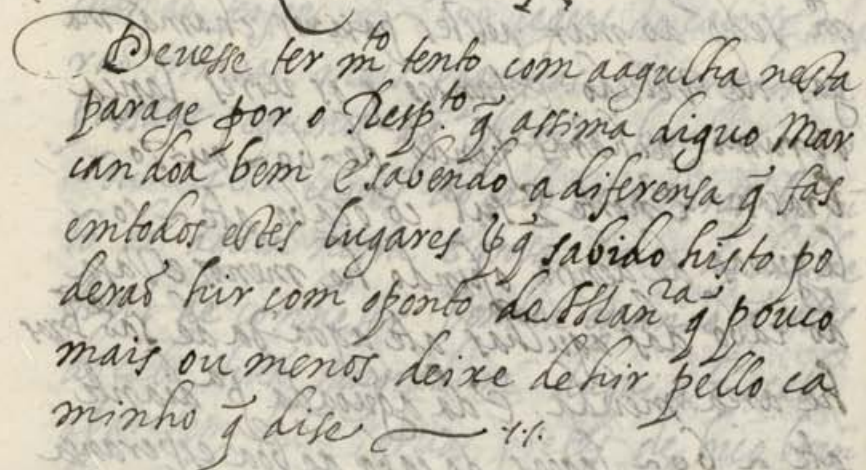 Devesse ter m.to tento com aagulha nesta
parage por o Resp.to q̃ assima diguo Mar
candoa bem e sabendo a diferensa q̃ fas
emtodos estes lugares p̱q̃ sabido histo po
deraõ hir com oponto de Man.ra q̃ pouco
mais ou menos deixe dehir pello ca
minho q̃ dise